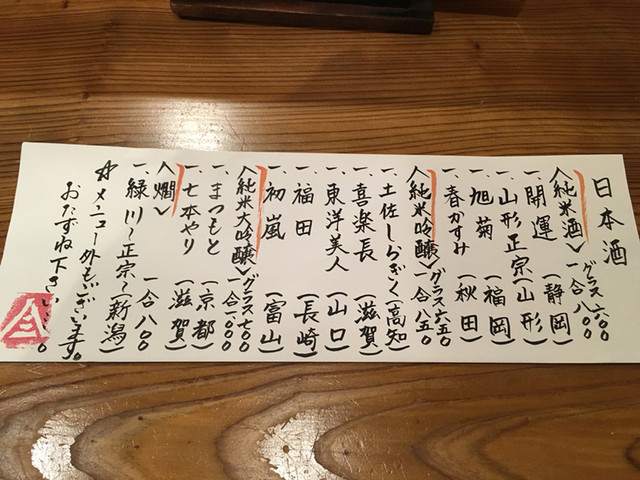 日本酒
〈純米酒〉グラス六〇〇
一合八〇〇
一、開運(静岡)
一、山形正宗(山形)
一、旭菊(福岡)
一、春かすみ(秋田)
〈純米吟醸〉グラス六五〇
一合八五〇
一、土佐しらぎく(高知)
一、喜楽長(滋賀)
一、東洋美人(山口)
一、福田(長崎)
一、初嵐(富山)
〈純米大吟醸〉グラス七〇〇
一合一〇〇〇
一、まつもと(京都)
一、七本やり(滋賀)
〈燗〉
一、緑川〜正宗〜(新潟)
一合八〇〇
☆メニュー外もございます。
おたずね下さい